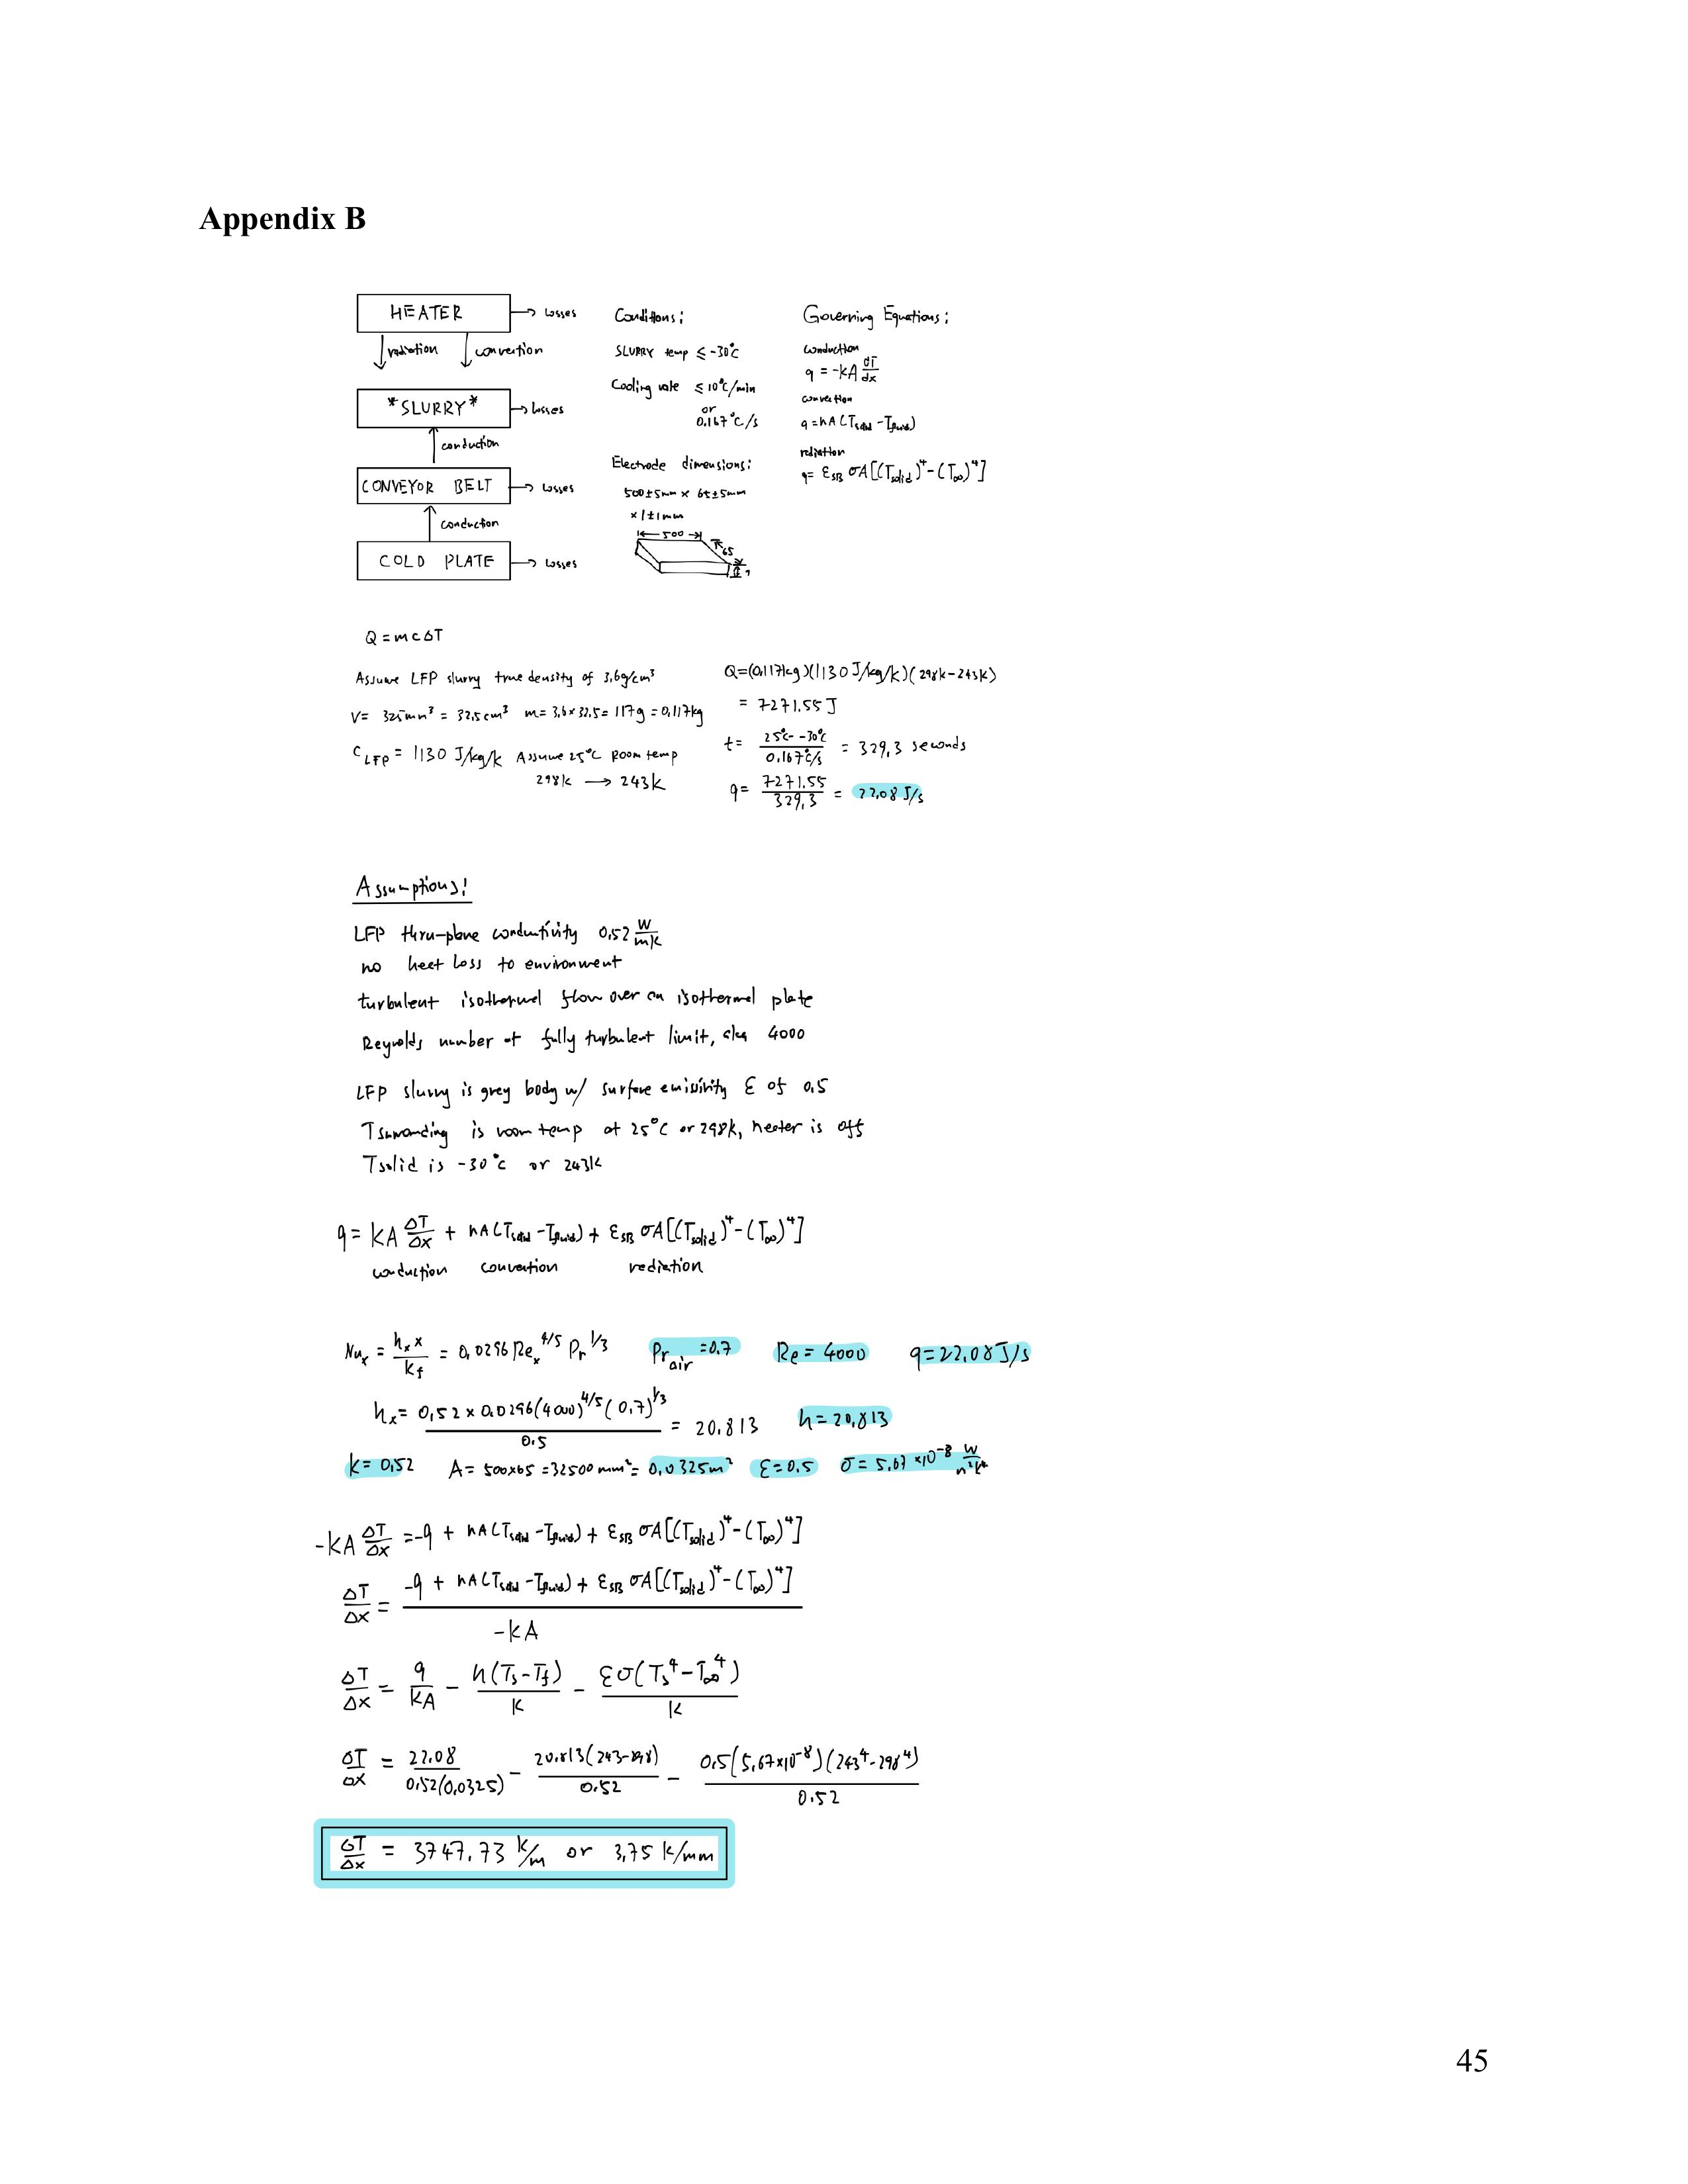 Appendix B
HEATER → losses
radiation convection
*SLURRY* → losses
conduction
CONVEYOR BELT → losses
conduction
COLD PLATE → losses
Conditions:
SLURRY temp ≤ -30°C
Cooling rate ≤ 10°C/min
or
0.167°C/s
Electrode dimensions:
500±5mm × 65±5mm
×1±1mm
500
65
1
Governing Equations:
conduction
q = -kA dT/dx
convection
q = hA(Tsolid - Tfluid)
radiation
q = εSB σA[(Tsolid)^4 - (T∞)^4]
Q = mcΔT
Assume LFP slurry true density of 3.6g/cm³
V = 325mm³ = 32.5cm³ m = 3.6×32.5 = 117g = 0.117kg
CLFP = 1130 J/kg/k Assume 25°C Room temp
298k → 243k
Q = (0.117kg)(1130 J/kg/k)(298k-243k)
= 7271.55 J
t = (25°C - -30°C)/(0.167°C/s) = 329.3 seconds
q = 7271.55/329.3 = 22.08 J/s
Assumptions:
LFP thru-plane conductivity 0.52 W/mk
no heat loss to environment
turbulent isothermal flow over an isothermal plate
Reynolds number at fully turbulent limit, aka 4000
LFP slurry is grey body w/ surface emissivity ε of 0.5
Tsurrounding is room temp at 25°C or 298k, heater is off
Tsolid is -30°C or 243k
q = kA ΔT/Δx + hA(Tsolid - Tfluid) + εSB σA[(Tsolid)^4 - (T∞)^4]
conduction convection radiation
Nux = hx x/kf = 0.0296 Rex^4/5 Pr^1/3 Prair = 0.7 Re = 4000 q = 22.08 J/s
hx = 0.52 × 0.0296(4000)^4/5(0.7)^1/3 / 0.5 = 20.813 h = 20.813
k = 0.52 A = 500×65 = 32500mm² = 0.0325m² ε = 0.5 σ = 5.67×10^-8 W/m²k⁴
-kA ΔT/Δx = -q + hA(Tsolid - Tfluid) + εSB σA[(Tsolid)^4 - (T∞)^4]
ΔT/Δx = (-q + hA(Tsolid - Tfluid) + εSB σA[(Tsolid)^4 - (T∞)^4]) / -kA
ΔT/Δx = q/kA - h(Ts - Tf)/k - εσ(Ts^4 - T∞^4)/k
ΔT/Δx = 22.08/0.52(0.0325) - 20.813(243-298)/0.52 - 0.5(5.67×10^-8)(243^4 - 298^4)/0.52
ΔT/Δx = 3747.73 k/m or 3.75 k/mm
45